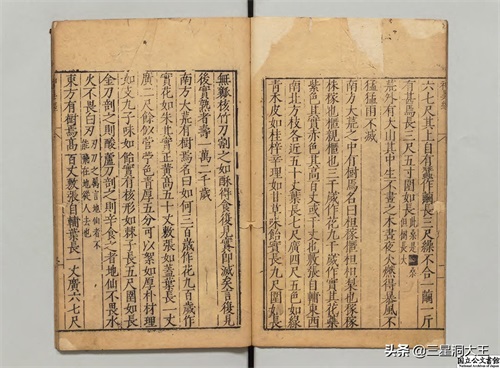 六七尺其上自有蠶作繭長三尺繰不合一繭一斤
有椹焉長三尺五寸圍如長
荒外有火山其中生不盡之木晝夜火然得暴風不
猛猛雨不滅
南方大荒之中有樹焉名曰柤稼櫃柤柤梨也稼
株稼也櫃親櫃也三千歲作花九千歲作實其花蘂
紫色其實赤色其高百丈或千丈也敷張自輔東西
南北方枝各近五十丈葉長七尺廣四尺五寸色如綠
青木皮如桂梓辛理如甘草味飴實長九尺圍如長
無瓤核竹刀剖之如酥得食復見實即滅矣言復見
後實熟者壽一萬二千歲
南方大荒有樹焉名曰如何三百歲作花九百歲作
實花如朱其實正黃高五十丈敷張如蓋葉長一丈
廣二尺餘似菅苧色青厚五分可以絮如厚朴材理
如支九子味如飴實有核形如棗子長五尺圍如長
金刀剖之則酸蘆刀剖之則辛食之者地仙不畏水
火不畏白刃
東方有樹焉高百丈敷張自輔葉長一丈廣六七尺
国立公文書館
National Archives of Japan
头条 @三星洞大王